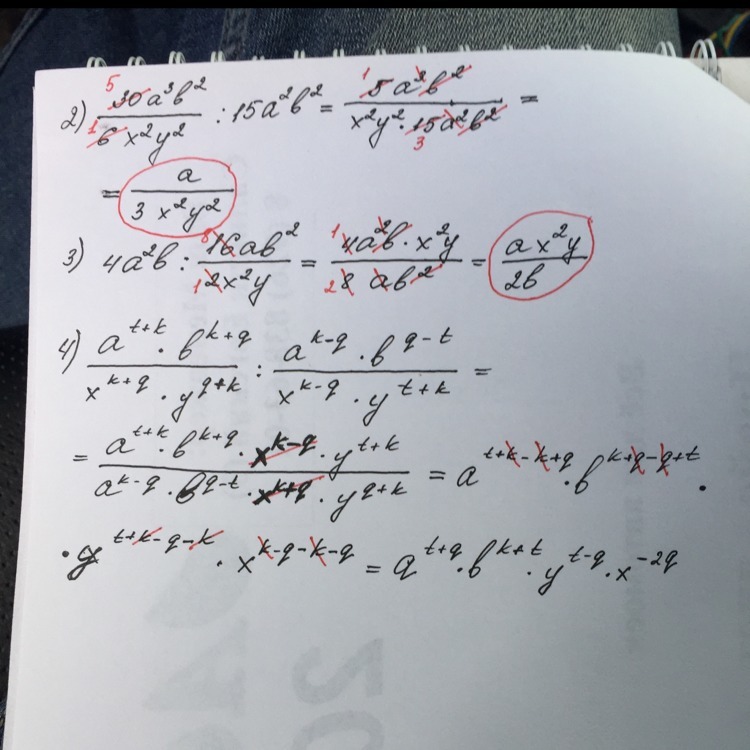 2) 30a³b² / 6x²y² : 15a²b² = 5a³b² / x²y² · 15a²b² =
= a / 3x²y²
3) 4a²b : 16ab² / 2x²y = 4a²b · x²y / 8ab² = ax²y / 2b
4) a^(t+k) · b^(k+q) / x^(k+q) · y^(q+k) : a^(k-q) · b^(q-t) / x^(k-q) · y^(t+k) =
= a^(t+k) · b^(k+q) · x^(k-q) · y^(t+k) / a^(k-q) · b^(q-t) · x^(k+q) · y^(q+k) = a^(t+k-k+q) · b^(k+q-q+t) ·
· y^(t+k-q-k) · x^(k-q-k-q) = a^(t+q) · b^(k+t) · y^(t-q) · x^(-2q)